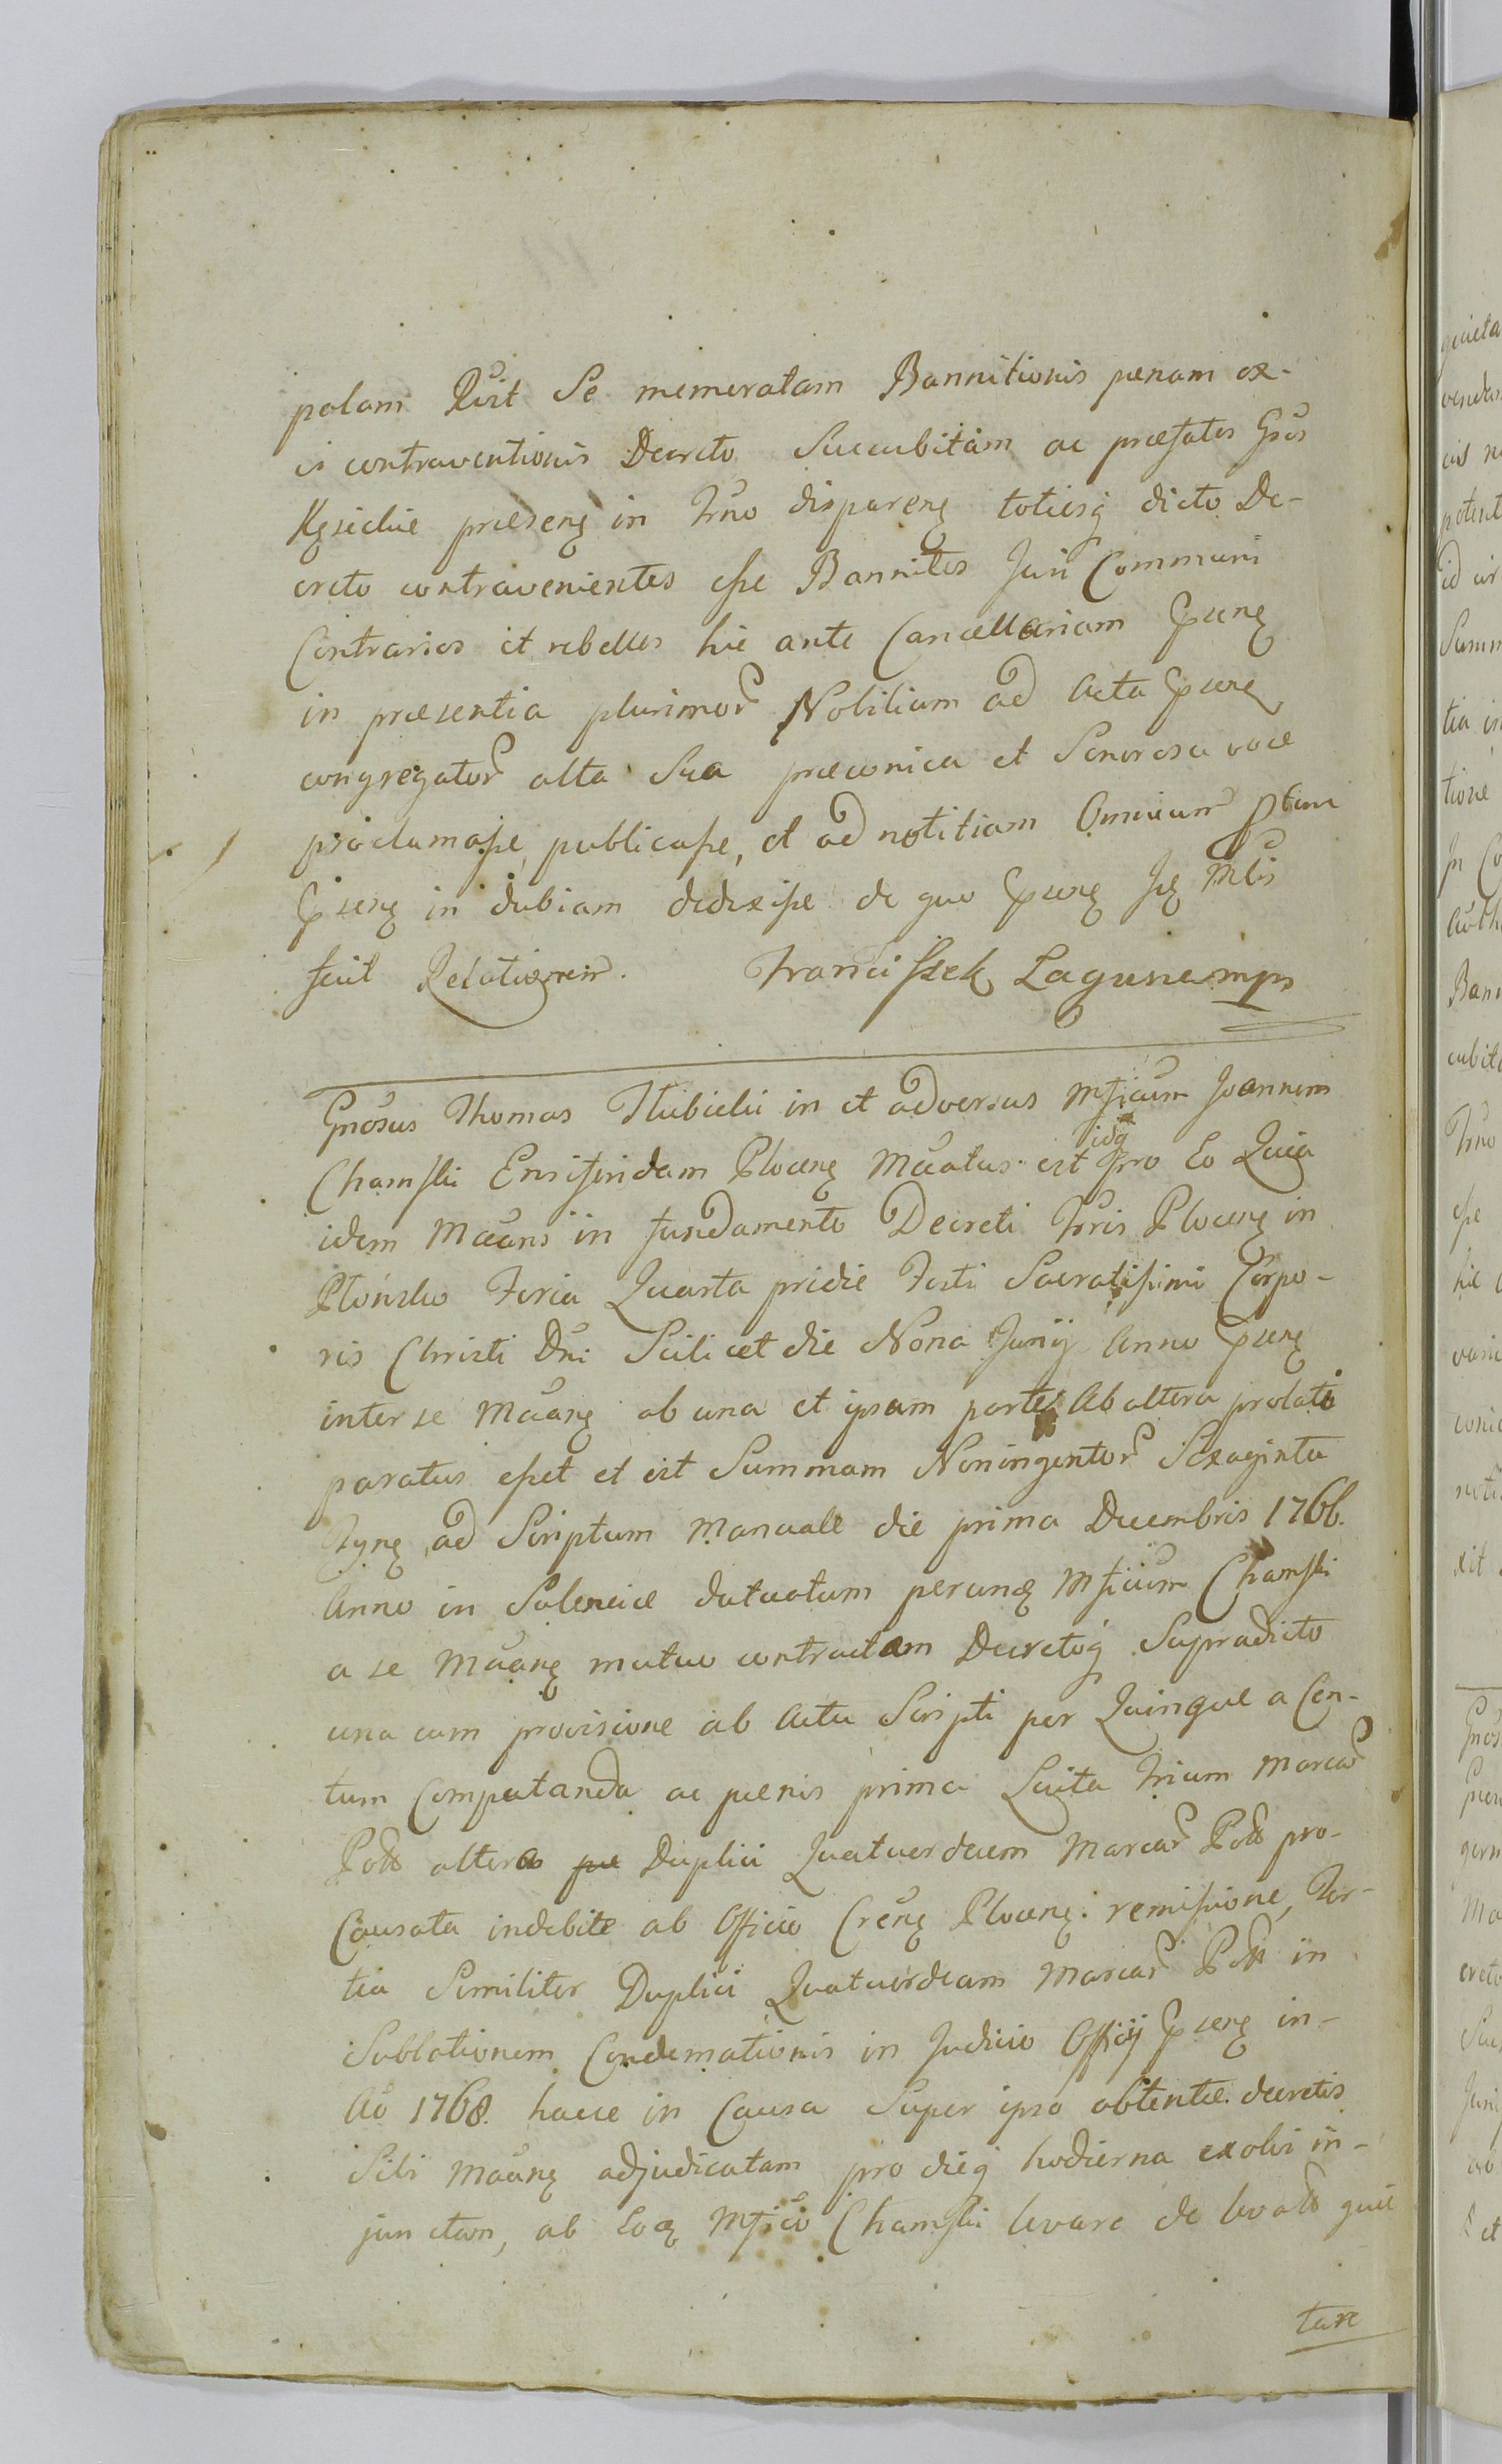 palam Rūit Se memoratam Bannitionis pœnam ex-
is contraventionis Decreto Succubitam ac præfatos Gsos
præsenę in Trno disparenę totiesq dicto De-
creto contravenientes eſse Bannitos Juri Communi
Contrarios et rebelles hic ante Cancellariam Psenę
in præsentia plurimor Nobilium ad Acta Psenę
congregator alta Sua præconica et Sonorosa voce
proclamaſse, publicaſse, et ad notitiam Omnium
Psenę in dubiam deduxiſse de quo Psenę
fecit Relationem. Franciſzek Laguna mpr
Gnosus Thomas in et adversus Mficum Joannem
Chamſki Ensiferidam Plocenę Mcatus est idq pro Eo Quia
idem Mcans in fundamento Decreti Trris Plocenę in
Płońsko Feria Quarta pridie Festi Sacratiſsimi Corpo-
ris Christi Dni Scilicet die Nona Junij Anno Psenę
inter se Mcanę ab una et ipsum parte Ab altera prolati
paratus eſset et est Summam Noningentor Sexaginta
ad Scriptum Manuale die prima Decembris 1766.
Anno in datuatum perunę Mficum Chamſki
a se Mcanę mutuo contractam Decretoq Supradicto
una cum provisione ab Actu Scripti per Quinque a Cen-
tum Computanda ac pœnis prima Luita trium Marcar
Polł altera Duplici Quatuordecim Marcar Polł pro-
Causata indebite ab Officio Crenę Plocenę. remiſsione, Ter-
tia Similiter Duplici Quatuordecim Marcar Polł in
Sublationem Condemnationis in Judicio Officij Psenę in-
Ao 1768. hacce in Causa Super ipso obtentæ decretis
Sibi Mcanę adjudicatam pro dieq hodierna exolvi in-
junctam, ab Eoę Mfico Chamſki levare de levatł quie
tare